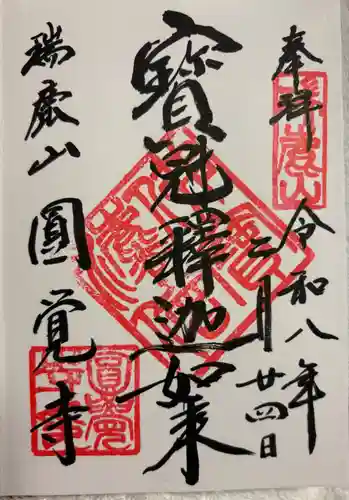 奉拝
瑞鹿山
令和八年
二月廿四日
寳冠釋迦如来
瑞鹿山
圓覚寺